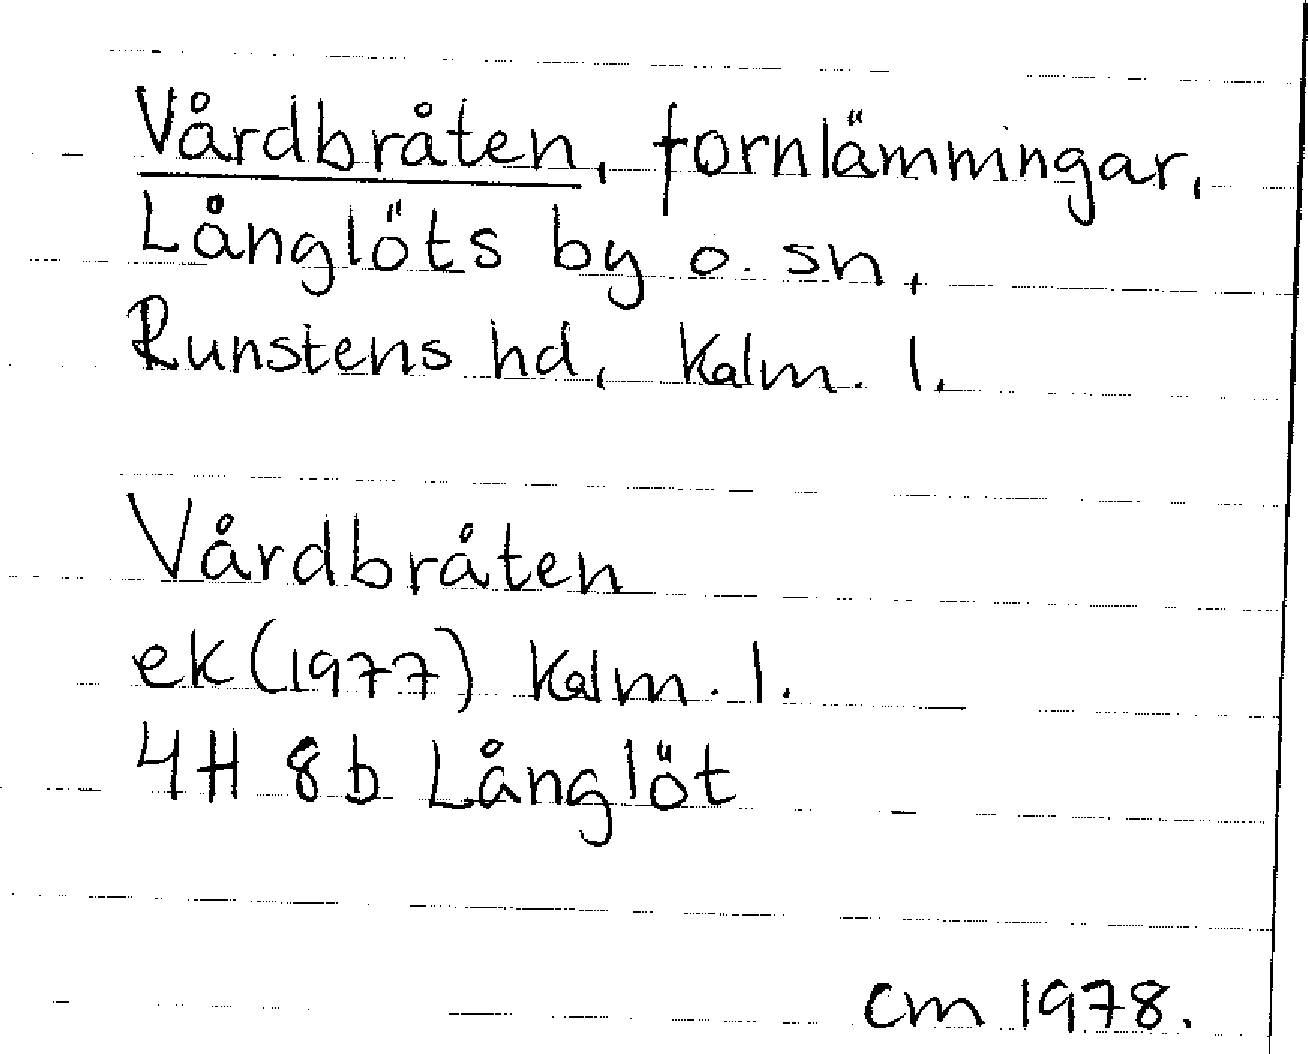 Vårdbråten, fornlämningar,
Långlöts by o. sn,
Runstens hd, Kalm. l.
Vårdbråten
ek (1977) Kalm. l.
4H 8b Långlöt
CM 1978.